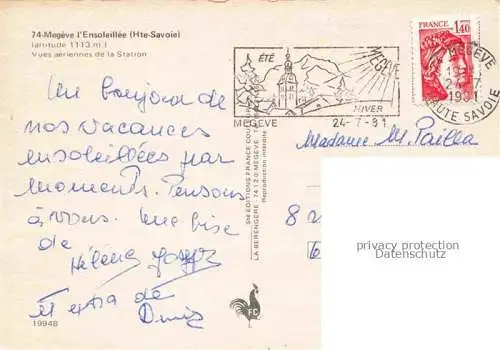 74-Megève l'Ensoleillée (Hte-Savoie)
(altitude 1113 m)
Vues aériennes de la Station
Un bonjour de
nos vacances
ensoleillées par
moments. Pensons
à vous. Une bise
de
Hélène Joseph
et extra de
Denis
19948
SNI EDITIONS FRANCE COULEUR
LA BERENGERE 74120 MEGEVE
Reproduction interdite
FC
ÉTÉ
MEGÈVE
HIVER
MEGEVE
24-7-81
FRANCE
1,40
MEGEVE
24
1981
HAUTE SAVOIE
Madame M. Pailla
8
privacy protection
Datenschutz